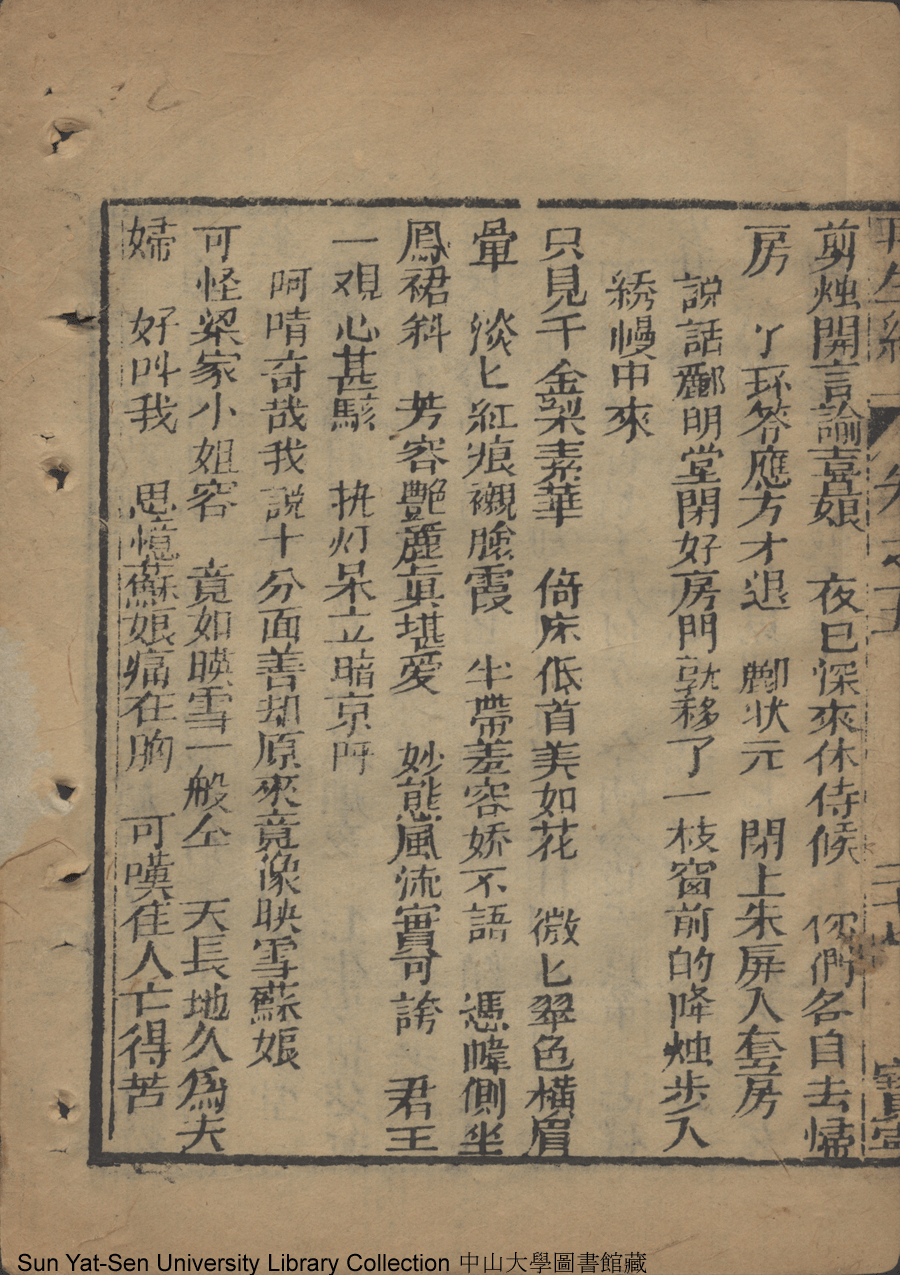 再生緣 卷之五 二十 寶
剪烛開言諭喜娘 夜已深來休侍候 你們各自去歸
房 了环答應方才退 酈状元 閉上朱屏入套房
說話酈明堂閉好房門就移了一枝窗前的降烛步入
綉幔中來
只見千金梁素華 倚床低首美如花 微匕翠色橫眉
暈 淡匕紅痕襯臉霞 半帶羞容娇不語 憑幃側坐
鳳裙斜 芳容艷麗真堪愛 妙態風流實可誇 君王
一覌心甚駭 执灯呆立暗京呀
阿唷奇哉我說十分面善却原來竟像映雪蘇娘
可怪梁家小姐容 竟如暎雪一般仝 天長地久為夫
婦 好叫我 思憶蘇娘痛在胸 可嘆佳人亡得苦
Sun Yat-Sen University Library Collection 中山大學圖書館藏